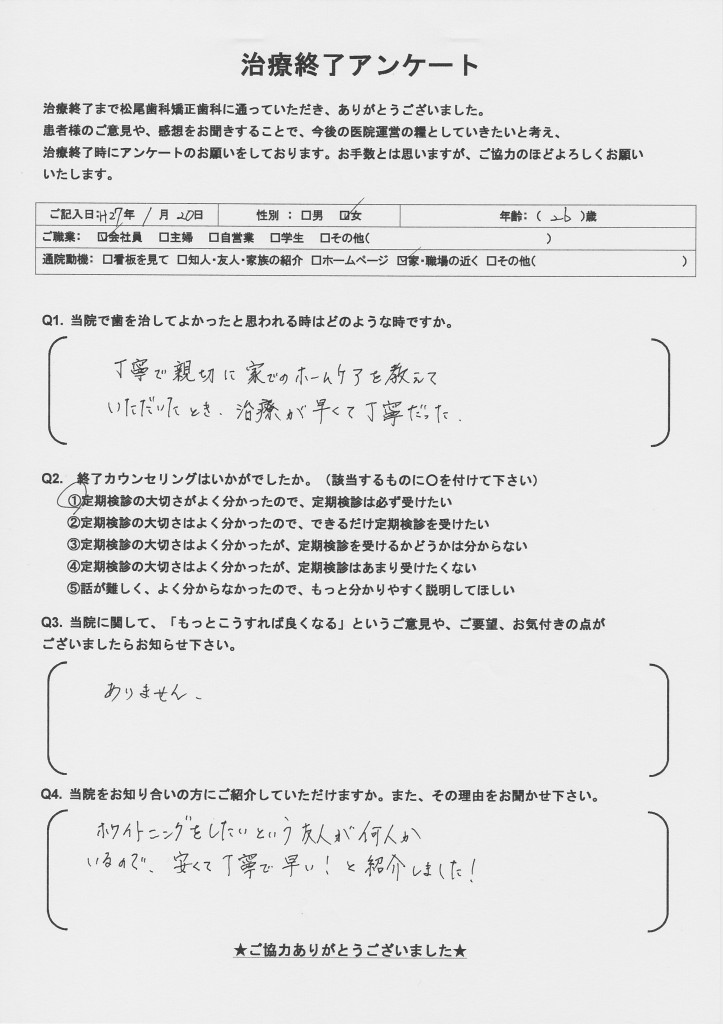 治療終了アンケート
治療終了まで松尾歯科矯正歯科に通っていただき、ありがとうございました。
患者様のご意見や、感想をお聞きすることで、今後の医院運営の糧としていきたいと考え、
治療終了時にアンケートのお願いをしております。お手数とは思いますが、ご協力のほどよろしくお願い
いたします。
ご記入日:H27年 1 月 20日 性別 : □男 ☑女 年齢:( 26 )歳
ご職業: ☑会社員 □主婦 □自営業 □学生 □その他( )
通院動機: □看板を見て □知人・友人・家族の紹介 □ホームページ ☑家・職場の近く □その他( )
Q1. 当院で歯を治してよかったと思われる時はどのような時ですか。
丁寧で親切に家でのホームケアを教えて
いただいたとき. 治療が早くて丁寧だった.
Q2. 終了カウンセリングはいかがでしたか。(該当するものに〇を付けて下さい)
①定期検診の大切さがよく分かったので、定期検診は必ず受けたい
②定期検診の大切さはよく分かったので、できるだけ定期検診を受けたい
③定期検診の大切さはよく分かったが、定期検診を受けるかどうかは分からない
④定期検診の大切さはよく分かったが、定期検診はあまり受けたくない
⑤話が難しく、よく分からなかったので、もっと分かりやすく説明してほしい
Q3. 当院に関して、「もっとこうすれば良くなる」というご意見や、ご要望、お気付きの点が
ございましたらお知らせ下さい。
ありません.
Q4. 当院をお知り合いの方にご紹介していただけますか。また、その理由をお聞かせ下さい。
ホワイトニングをしたいという友人が何人か
いるので、安くて丁寧で早い!と紹介しました!
★ご協力ありがとうございました★